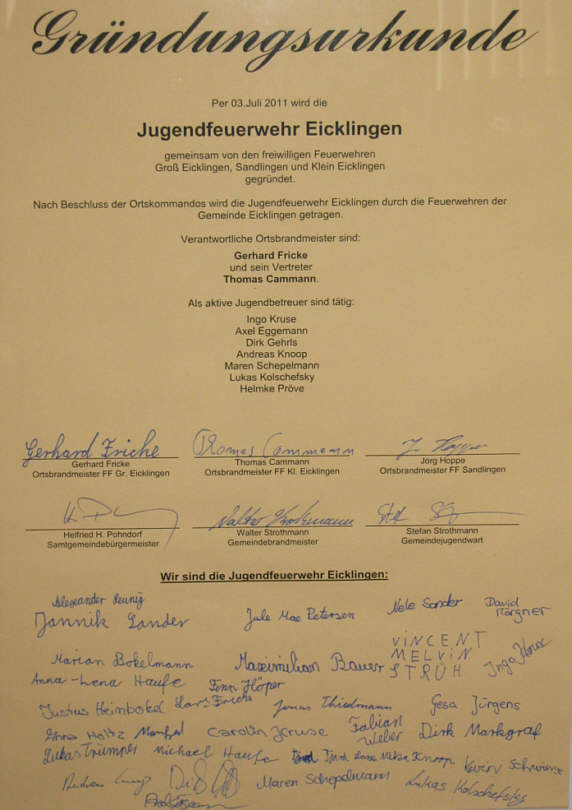 Gründungsurkunde
Per 03.Juli 2011 wird die
Jugendfeuerwehr Eicklingen
gemeinsam von den freiwilligen Feuerwehren
Groß Eicklingen, Sandlingen und Klein Eicklingen
gegründet.
Nach Beschluss der Ortskommandos wird die Jugendfeuerwehr Eicklingen durch die Feuerwehren der
Gemeinde Eicklingen getragen.
Verantwortliche Ortsbrandmeister sind:
Gerhard Fricke
und sein Vertreter
Thomas Cammann.
Als aktive Jugendbetreuer sind tätig:
Ingo Kruse
Axel Eggemann
Dirk Gehrls
Andreas Knoop
Maren Schepelmann
Lukas Kolschefsky
Helmke Pröve
Gerhard Fricke Thomas Cammann J. Hoppe
Gerhard Fricke Thomas Cammann Jörg Hoppe
Ortsbrandmeister FF Gr. Eicklingen Ortsbrandmeister FF Kl. Eicklingen Ortsbrandmeister FF Sandlingen
Walter Strothmann
Helfried H. Pohndorf Walter Strothmann Stefan Strothmann
Samtgemeindebürgermeister Gemeindebrandmeister Gemeindejugendwart
Wir sind die Jugendfeuerwehr Eicklingen:
Alexander Nele Sander David
Jannik Sander Jule Mae Petersen
VINCENT
Marian Bokelmann Maximilian Bauer MELVIN
STRÜH
Anna-Lena Haufe Fenn Höper
Justus Heimbokel Lars Fricke Jonas Thiedmann Gesa Jürgens
Holtz Carolin Kruse Fabian Weber Dirk Markgraf
Lukas Trümper Michael Haufe Knoop
Maren Schepelmann Lukas Kolschefsky